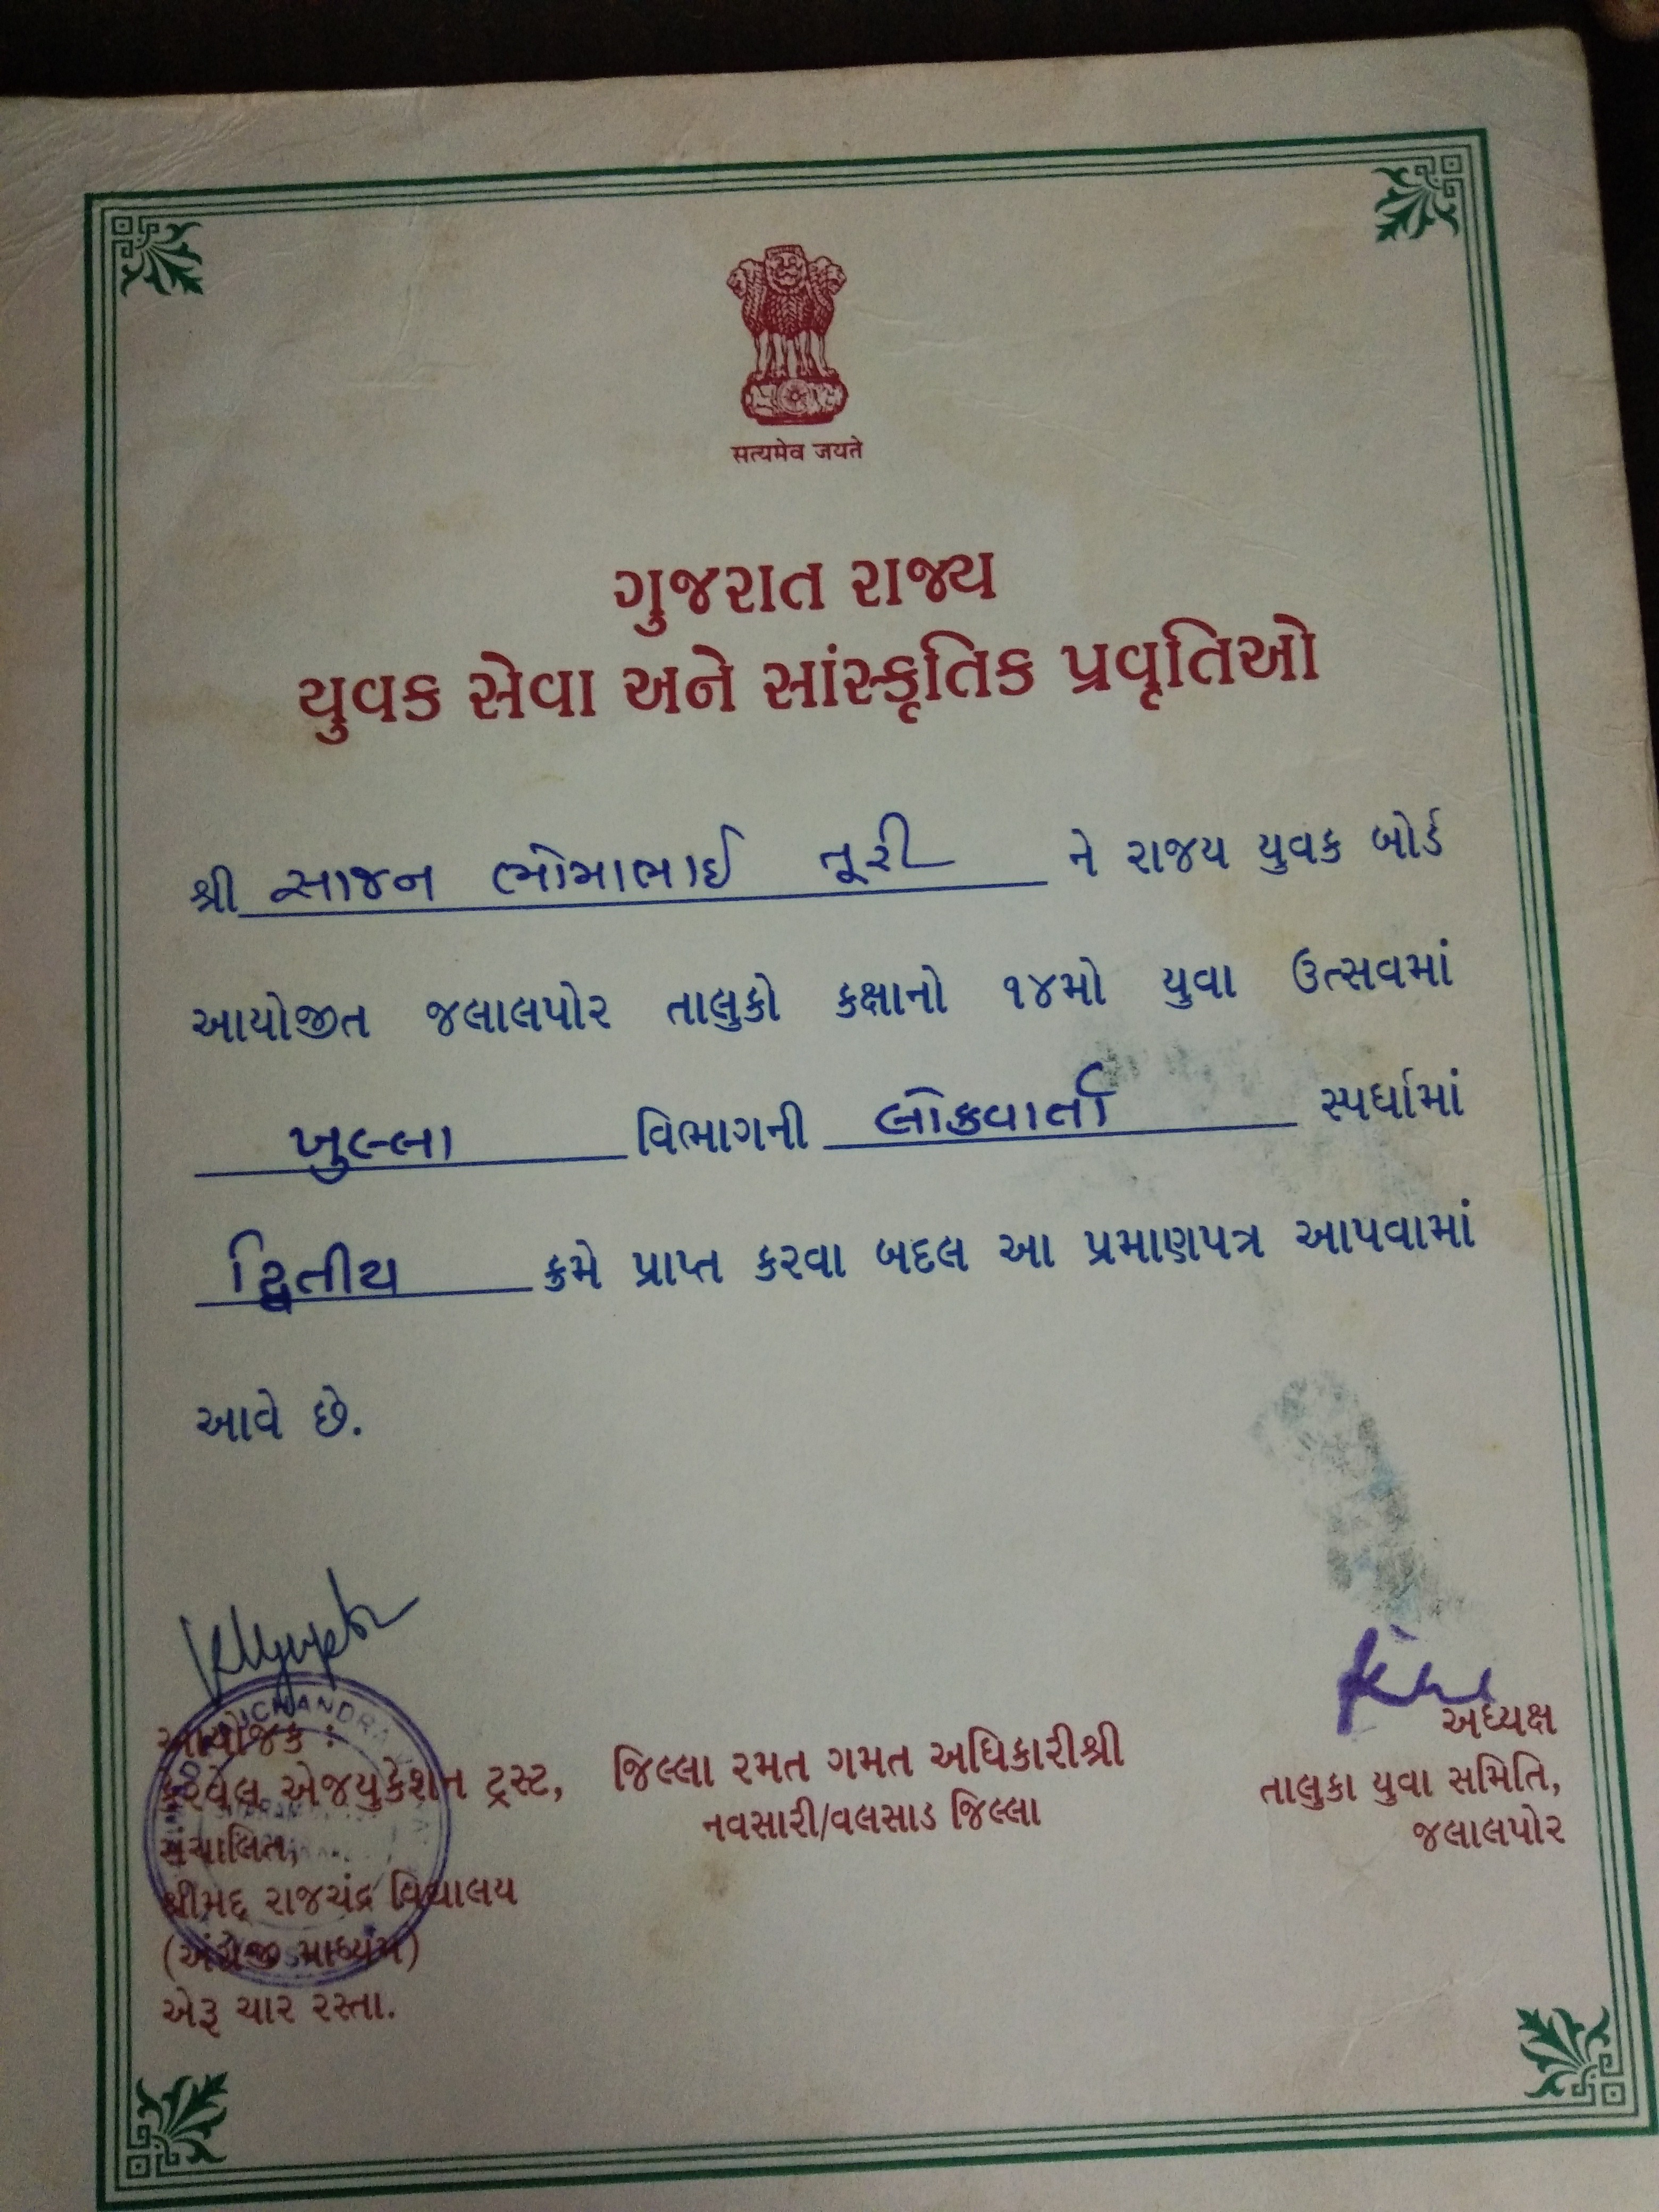 सत्यमेव जयते
ગુજરાત રાજ્ય
યુવક સેવા અને સાંસ્કૃતિક પ્રવૃતિઓ
શ્રી સાજન ભોમાભાઈ તૂરી ને રાજય યુવક બોર્ડ
આયોજીત જલાલપોર તાલુકો કક્ષાનો ૧૪મો યુવા ઉત્સવમાં
ખુલ્લા વિભાગની લોકવાર્તા સ્પર્ધામાં
દ્વિતીય ક્રમે પ્રાપ્ત કરવા બદલ આ પ્રમાણપત્ર આપવામાં
આવે છે.
આયોજક :
કેરવેલ એજયુકેશન ટ્રસ્ટ,
સંચાલિત,
શ્રીમદ્ રાજચંદ્ર વિદ્યાલય
(અંગ્રેજી માધ્યમ)
એરૂ ચાર રસ્તા.
જિલ્લા રમત ગમત અધિકારીશ્રી
નવસારી/વલસાડ જિલ્લા
અધ્યક્ષ
તાલુકા યુવા સમિતિ,
જલાલપોર